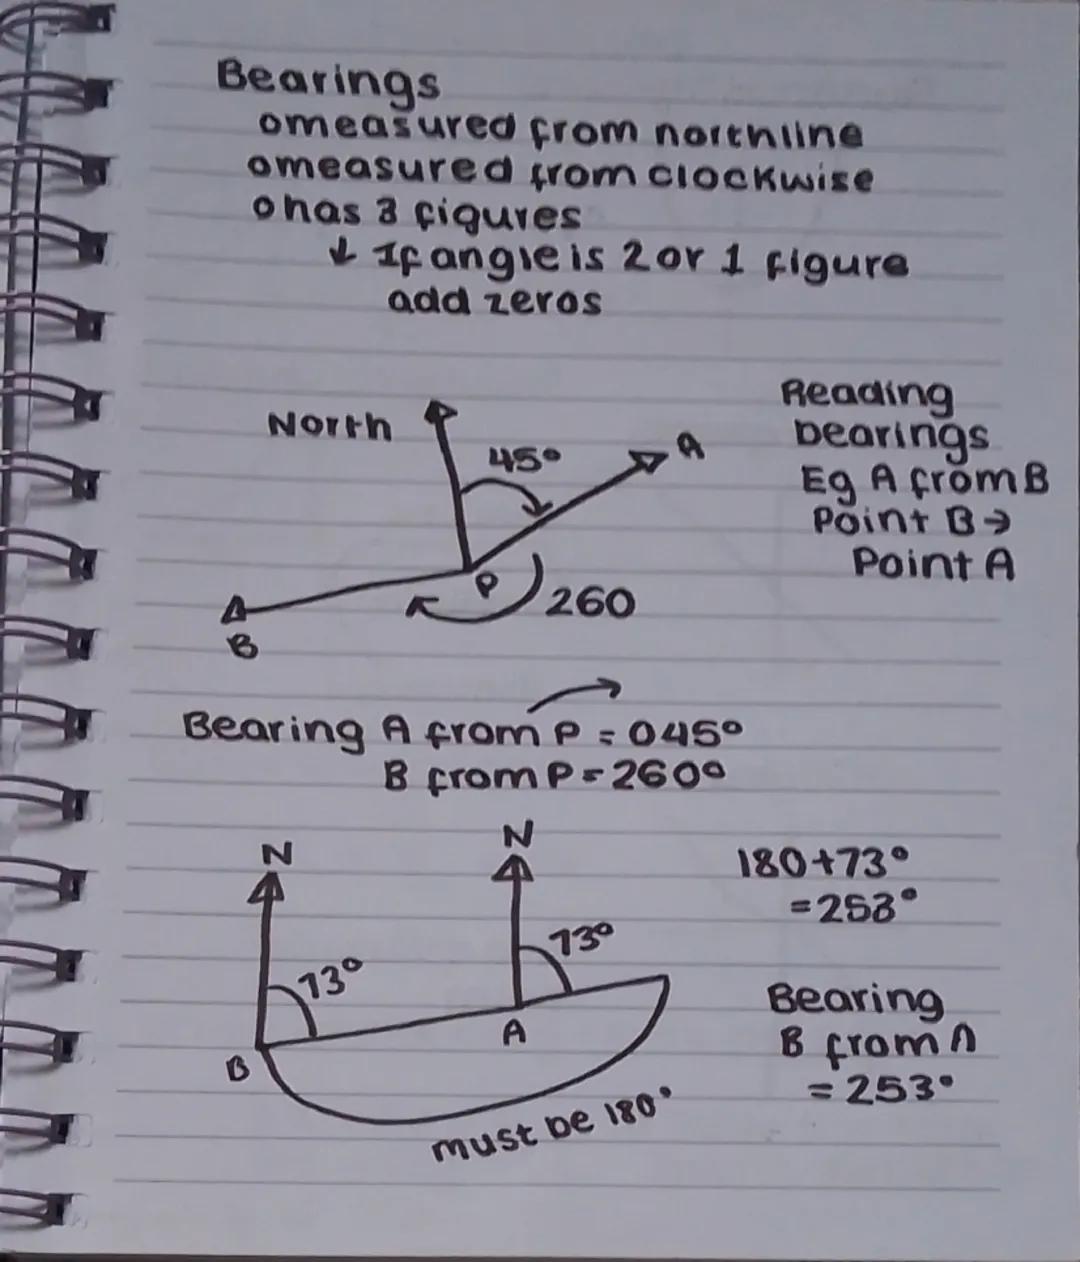 Bearings
o measured from northline
o measured from clockwise
o has 3 figures
↓ If angle is 2 or 1 figure
add zeros
Reading
bearings
Eg A from B
Point B →
Point A
North
45°
A
P
260
B
Bearing A from P = 045°
B from P = 260°
N
N
73°
73°
B
A
must be 180°
180+73°
=253°
Bearing
B from A
= 253°